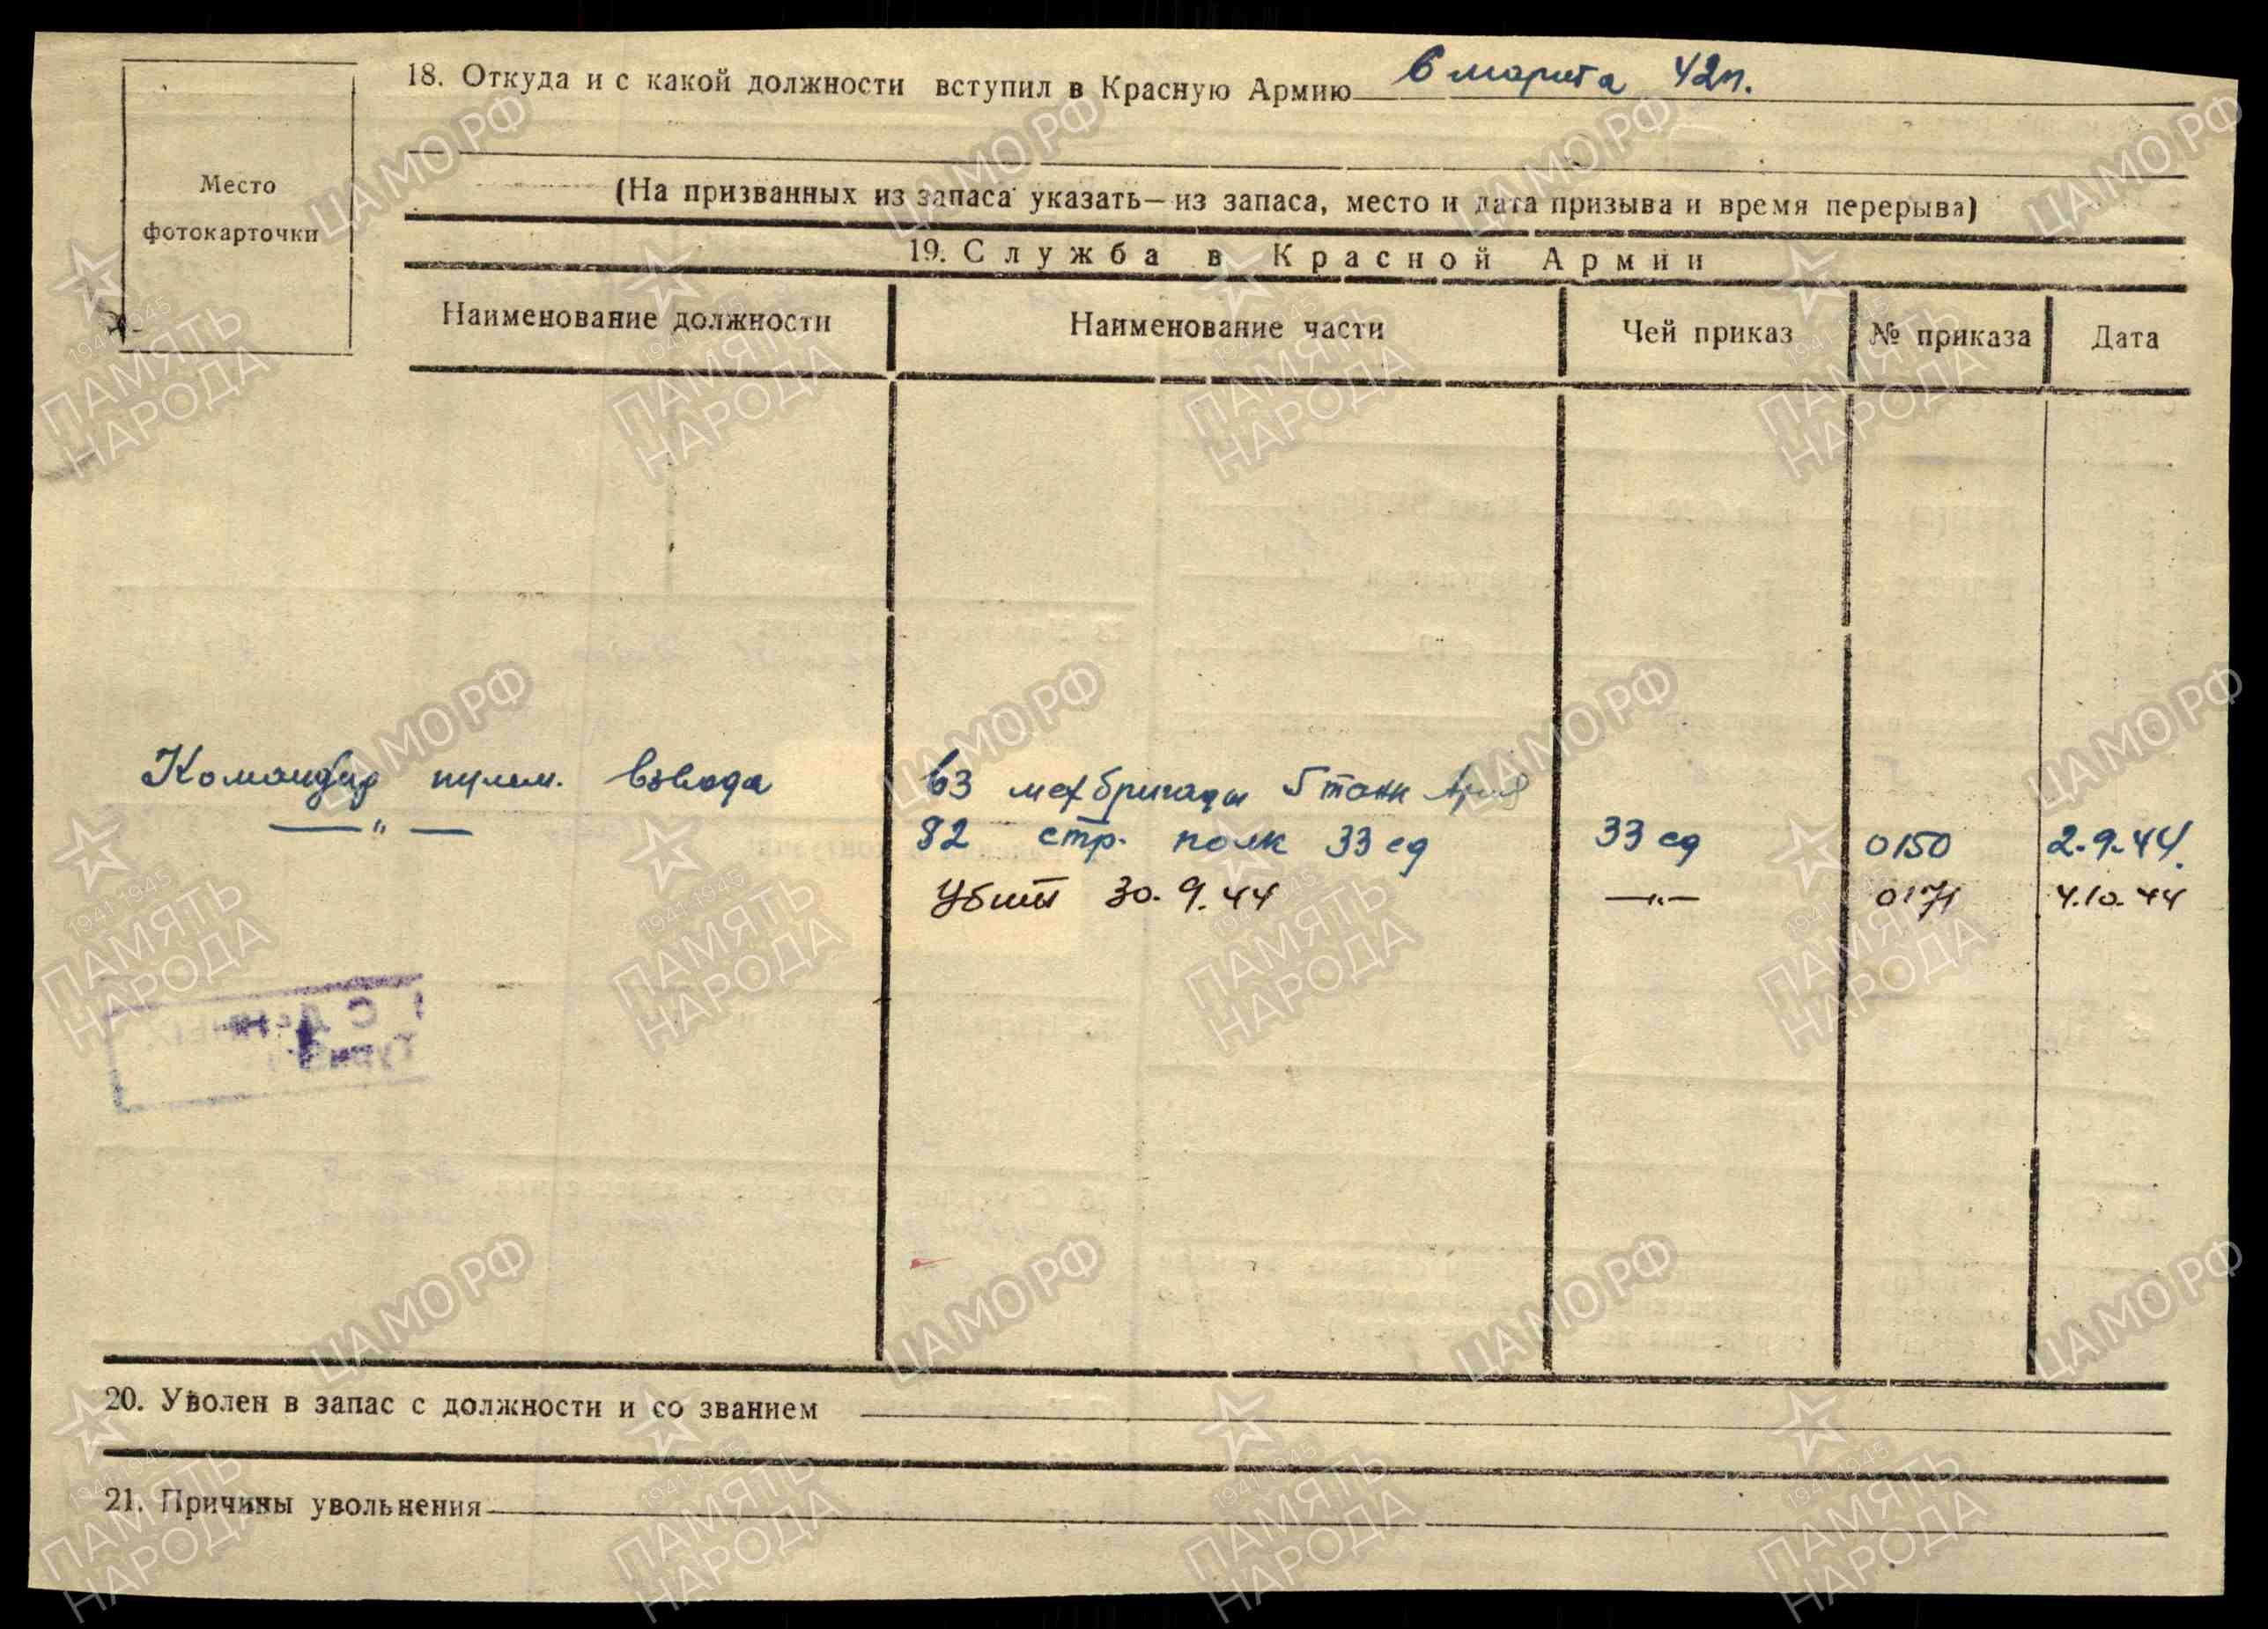 18. Откуда и с какой должности вступил в Красную Армию 6 марта 42 г.
(На призванных из запаса указать—из запаса, место и дата призыва и время перерыва)
Место
фотокарточки
19. Служба в Красной Армии
Наименование должности Наименование части Чей приказ № приказа Дата
Командир пулем. взвода 63 мехбригады 5 танк Арм
—"— 82 стр. полк 33 сд 33 сд 0150 2.9.44.
Убит 30.9.44 —"— 0171 4.10.44
20. Уволен в запас с должности и со званием
21. Причины увольнения
ЦАМО.РФ
1941-1945
ПАМЯТЬ
НАРОДА